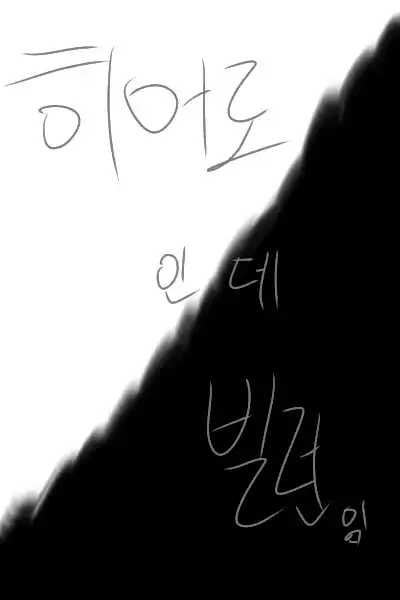 히어로
인데
빌런임